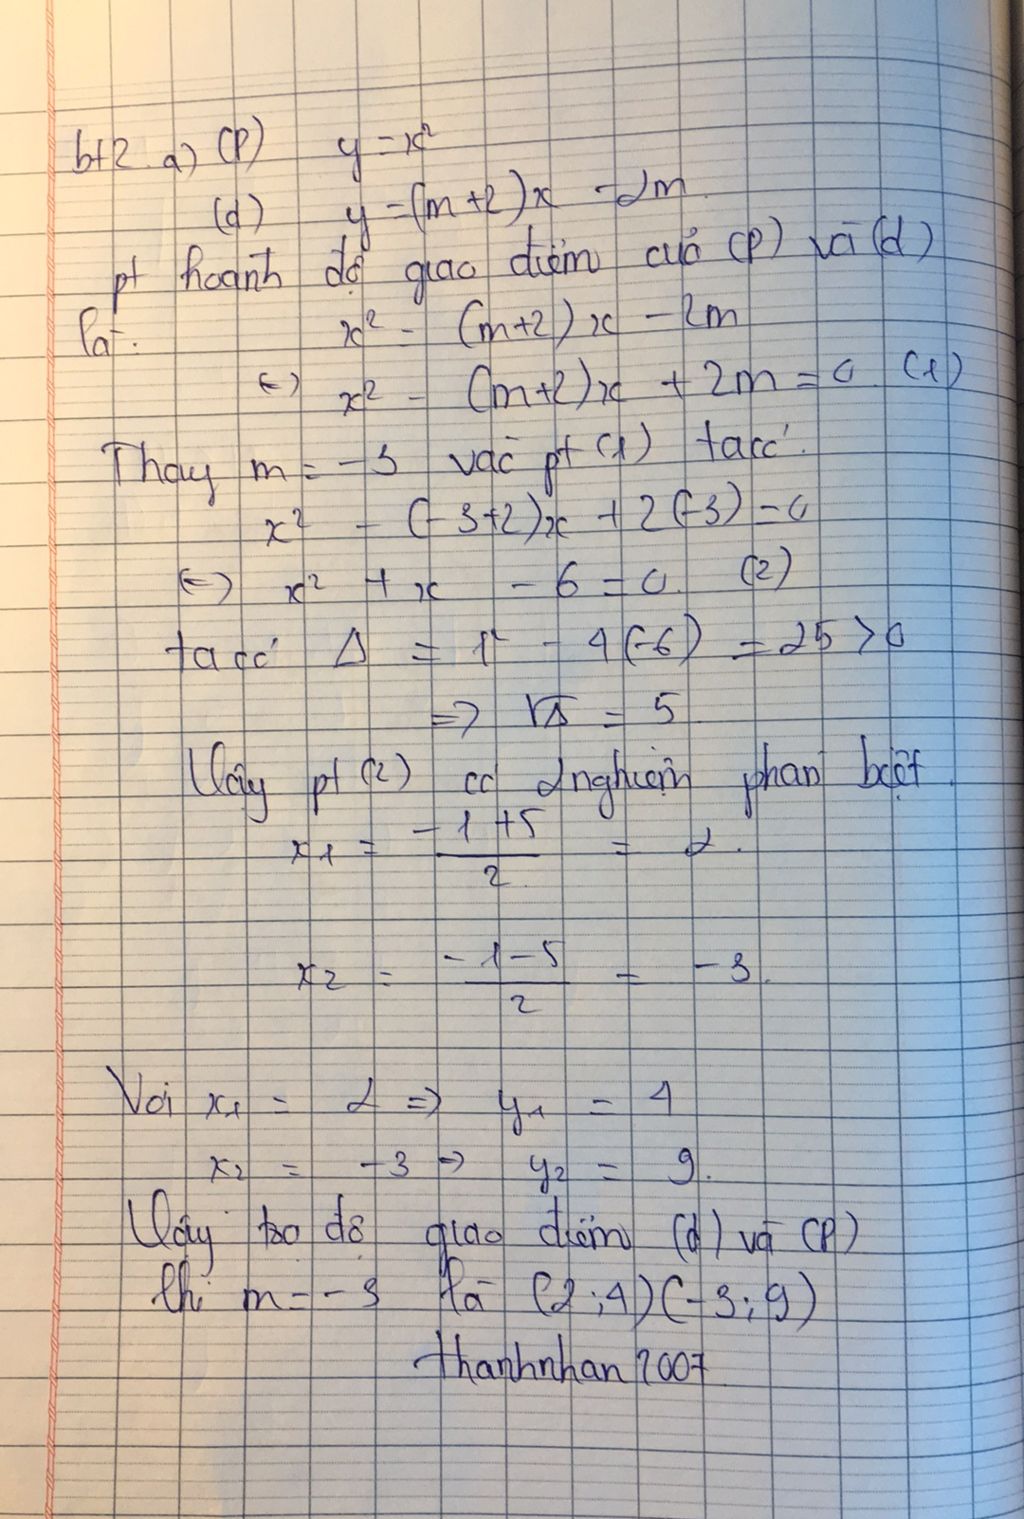 bt2 a) (P) y = x²
(d) y = (m+2)x - 2m
pt hoành độ giao điểm của (P) và (d)
là: x² - (m+2)x - 2m
<=> x² - (m+2)x + 2m = 0 (1)
Thay m = -3 vào pt (1) ta có:
x² - (-3+2)x + 2(-3) = 0
<=> x² + x - 6 = 0. (2)
ta có Δ = 1² - 4(-6) = 25 > 0
=> √Δ = 5
Vậy pt (2) có 2 nghiệm phân biệt.
x1 = (-1+5)/2 = 2.
x2 = (-1-5)/2 = -3.
Với x1 = 2 => y1 = 4
x2 = -3 => y2 = 9.
Vậy tọa độ giao điểm (d) và (P)
khi m = -3 là (2;4)(-3;9)
thanhnhan2007